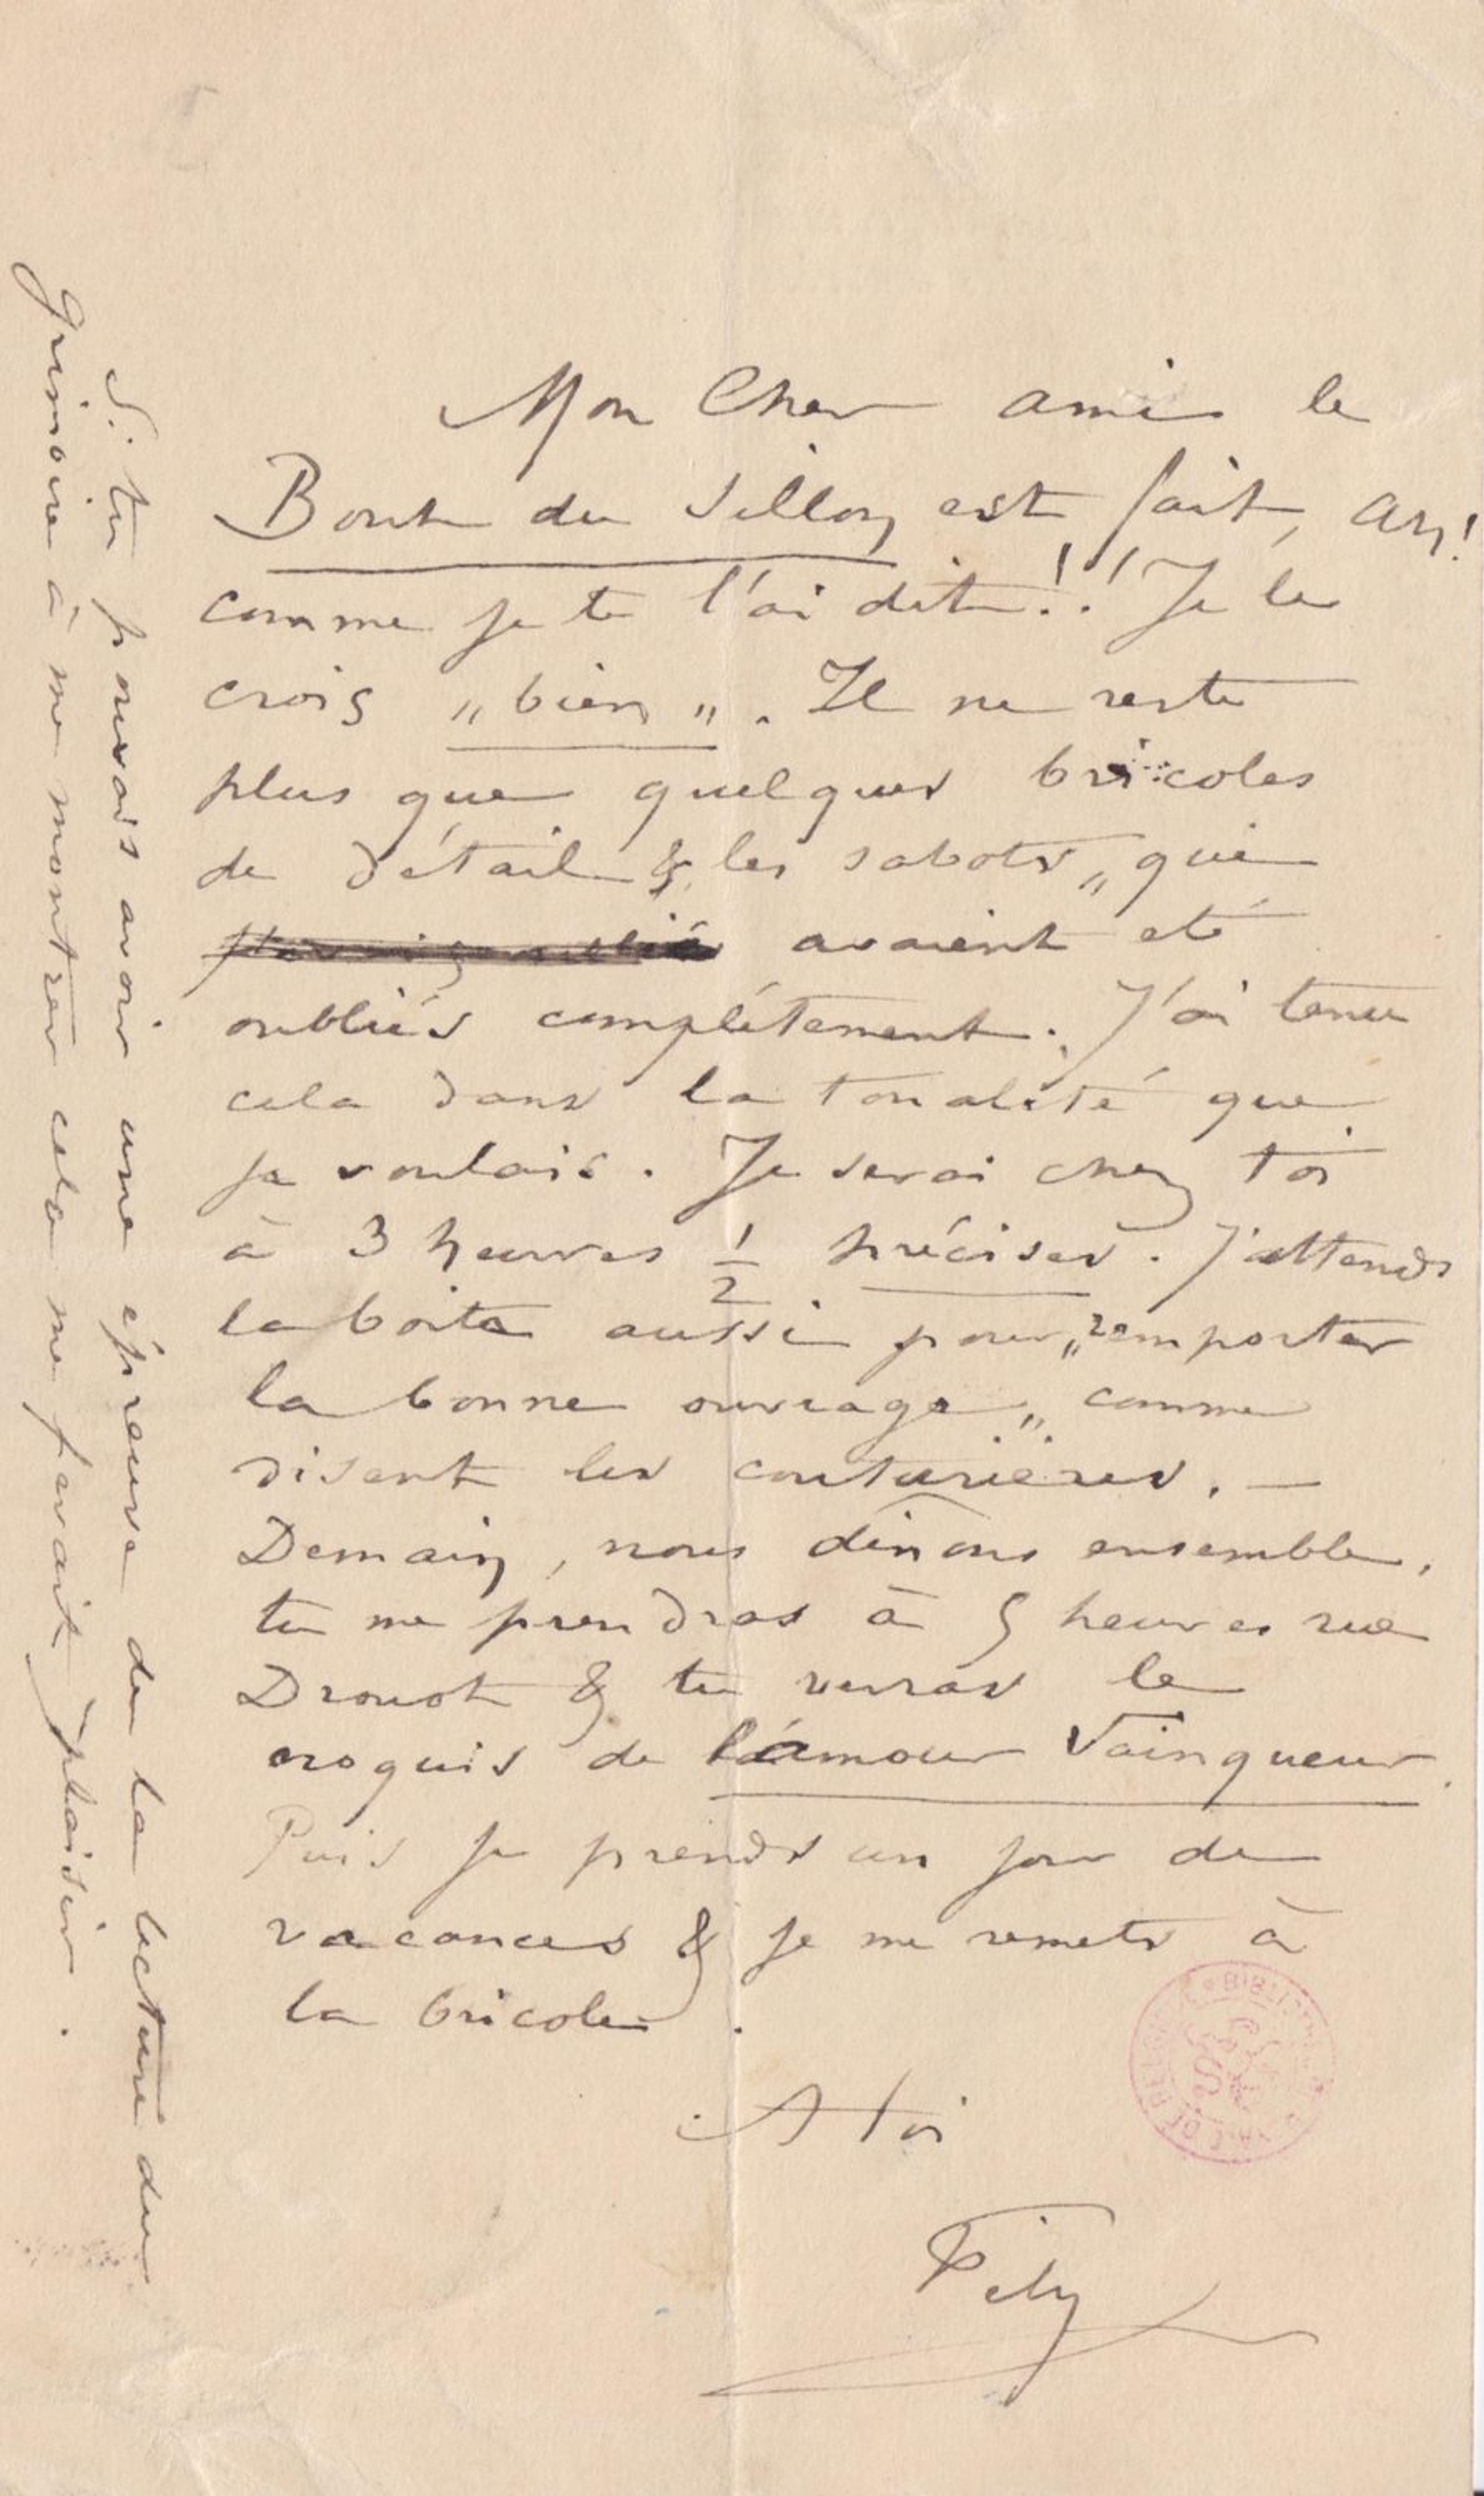 Mon Cher ami le
Bout du Sillon est fait,
comme je te l'ai dit!! Je le
crois „bien„. Il ne reste
plus que quelques bricoles
de détail & les sabots„ qui
avaient eté
oubliés complétement. J'ai tenu
cela dans la tonalité que
je voulais. Je serai chez toi
à 3 heures 1/2 précises. J'attends
la boite aussi pour „remporter
la bonne ouvrage„ comme
disent les couturières. —
Demain, nous dînons ensemble,
tu me prendras à 5 heures rue
Drouot & tu verras le
croquis de l'amour Vainqueur.
Puis je prends un jour de
vacances & je me remets à
la bricole.
A toi
Fély
Si tu pouvais avoir une épreuve de la lecture du
Grimoire à me montrer cela me ferait plaisir.